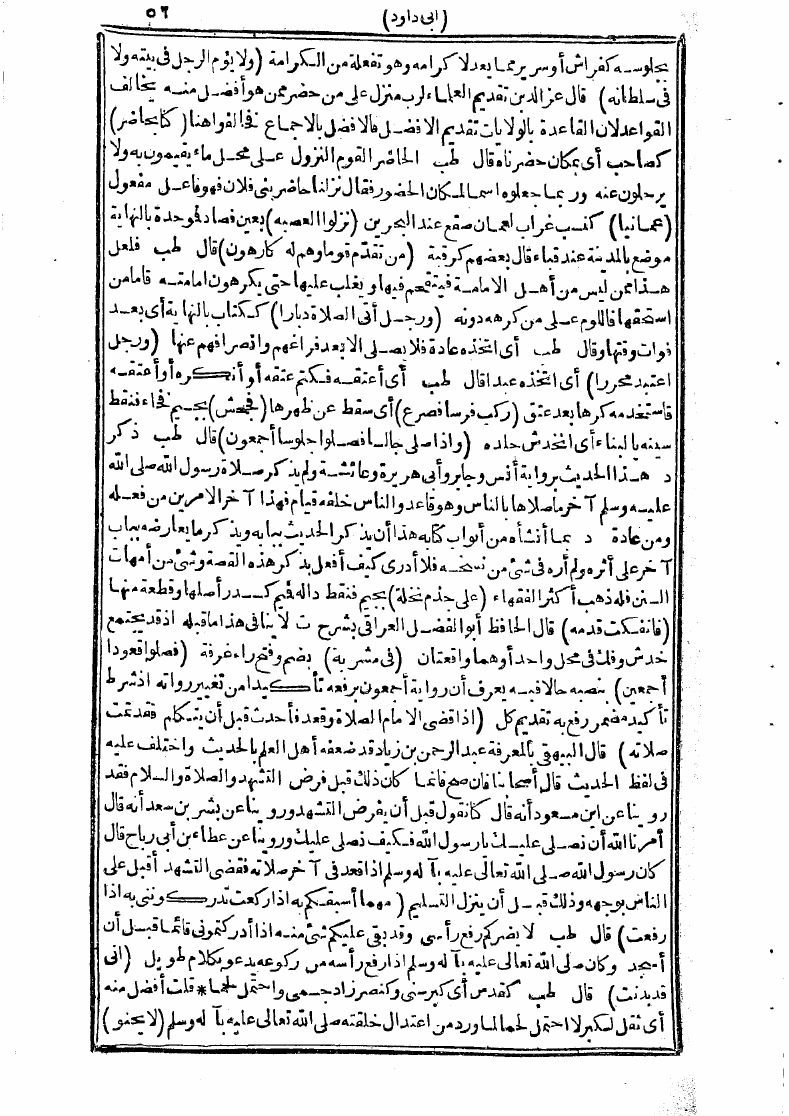 (ابى داود) ٥٦
بجلوسه كفراش أوسرير مما يعدلاكرامه وهو تفعلة من الكرامة (ولا يؤم الرجل فى بيته ولا
فى سلطانه) قال عز الدين تقديم العلماء لرب منزل على من حضر ممن هو أفضل منه يخالف
القواعد لان القاعدة بالولايات تقديم الافضل فالافضل بالاجماع فخالفوا هنا (كنا بحاضر)
كصاحب أى بمكان حضرناه قال طب الحاضر القوم النزول على محل ماء يقيمون به ولا
يرحلون عنه وربما جعلوه اسما لمكان الحضور فقال نزلنا حاضر بنى فلان فهو فاعل مفعول
(عمانيا) كنسب غراب لعمان صقع عند البحرين (نزلوا العصبة) بعين فصاد فموحدة بالنهاية
موضع بالمدينة عند قباء قال بعضهم كرقبة (من تقدم قوما وهم له كارهون) قال طب فلعل
هذا ممن ليس من أهل الامامة فيتقحم فيها ويغلب عليها حتى يكرهون امامته فاما من
استحقها فاللوم على من كرهه دونه (ورجل أتى الصلاة دبارا) ككتاب بالنهاية أى بعد
فوات وقتها وقال طب أى اتخذه عادة فلا يصلى الا بعد فراغهم وانصرافهم عنها (ورجل
اعتبد محررا) أى اتخذه عبدا قال طب أى أعتقه فكتم عتقه أو أنكره أو أعتقه
فاستخدمه كرها بعد عتق (ركب فرسا فصرع) أى سقط عن ظهرها (فجحش) بجيم فحاء فنقط
سينه بالبناء أى انخدش جلده (واذا صلى جالسا فصلوا جلوسا أجمعون) قال طب ذكر
د هذا الحديث برواية أنس وجابر وأبى هريرة وعائشة ولم يذكر صلاة رسول الله صلى الله
عليه وسلم آخر ما صلاها بالناس وهو قاعد والناس خلفه قيام فهذا آخر الامرين من فعله
ومن عادة د بما أنشأه من أبواب كتابه هذا أن يذكر الحديث ببابه ويذكر ما يعارضه بباب
آخر على أثره ولم أره فى شئ من نسخه فلا أدرى كيف أفعل بذكر هذه القصة وشئ من أمهات
السنن فله ذهب أكثر الفقهاء (على جذم نخلة) بجيم فنقط داله فميم كسدر أصلها وقطعة منها
(فانفكت قدمه) قال الحافظ أبو الفضل العراقى بشرح ت لا ينافى هذا ما قبله اذ قد يجتمع
خدش وفك فى محل واحد أو هما واقعتان (فى مشربة) بضم وفتح راء غرفة (فصلوا قعودا
أجمعين) بنصبه حالا فبه يعرف أن رواية أجمعون برفعه تأكيدا من تغيير رواته اذ شرط
تأكيد مضمر رفع به تقديم كل (اذا قضى الامام الصلاة وقعد فأحدث قبل أن يتكلم فقد تمت
صلاته) قال البيهقى بالمعرفة عبد الرحمن بن زياد قد ضعفه أهل العلم بالحديث واختلف عليه
فى لفظ الحديث قال أصحابنا فان صح فانما كان ذلك قبل فرض التشهد والصلاة والسلام فقد
روينا عن ابن مسعود أنه قال كنا نقول قبل أن يفرض التشهد وروينا عن بشر بن سعد أنه قال
أمرنا الله أن نصلى عليك يا رسول الله فكيف نصلى عليك وروينا عن عطاء بن أبى رباح قال
كان رسول الله صلى الله تعالى عليه بآله وسلم اذا قعد فى آخر صلاته فقضى التشهد أقبل على
الناس بوجهه وذلك قبل أن ينزل التسليم (مهما أسبقكم به اذا ركعت تدركونى به اذا
رفعت) قال طب لا يضركم رفع رأسى وقد بقى عليكم شئ منه اذا أدركتمونى قائما قبل أن
أسجد وكان صلى الله تعالى عليه بآله وسلم اذا رفع رأسه من ركوعه يدعو بكلام طويل (انى
قد بدنت) قال طب كقدس أى كبر سنى وكنصر زاد جسمى واحتمل لحما * قلت أفضل منه
أى ثقل لكبر لا احتمل لحما لما ورد من اعتدال خلقته صلى الله تعالى عليه بآله وسلم (لا يحنو)